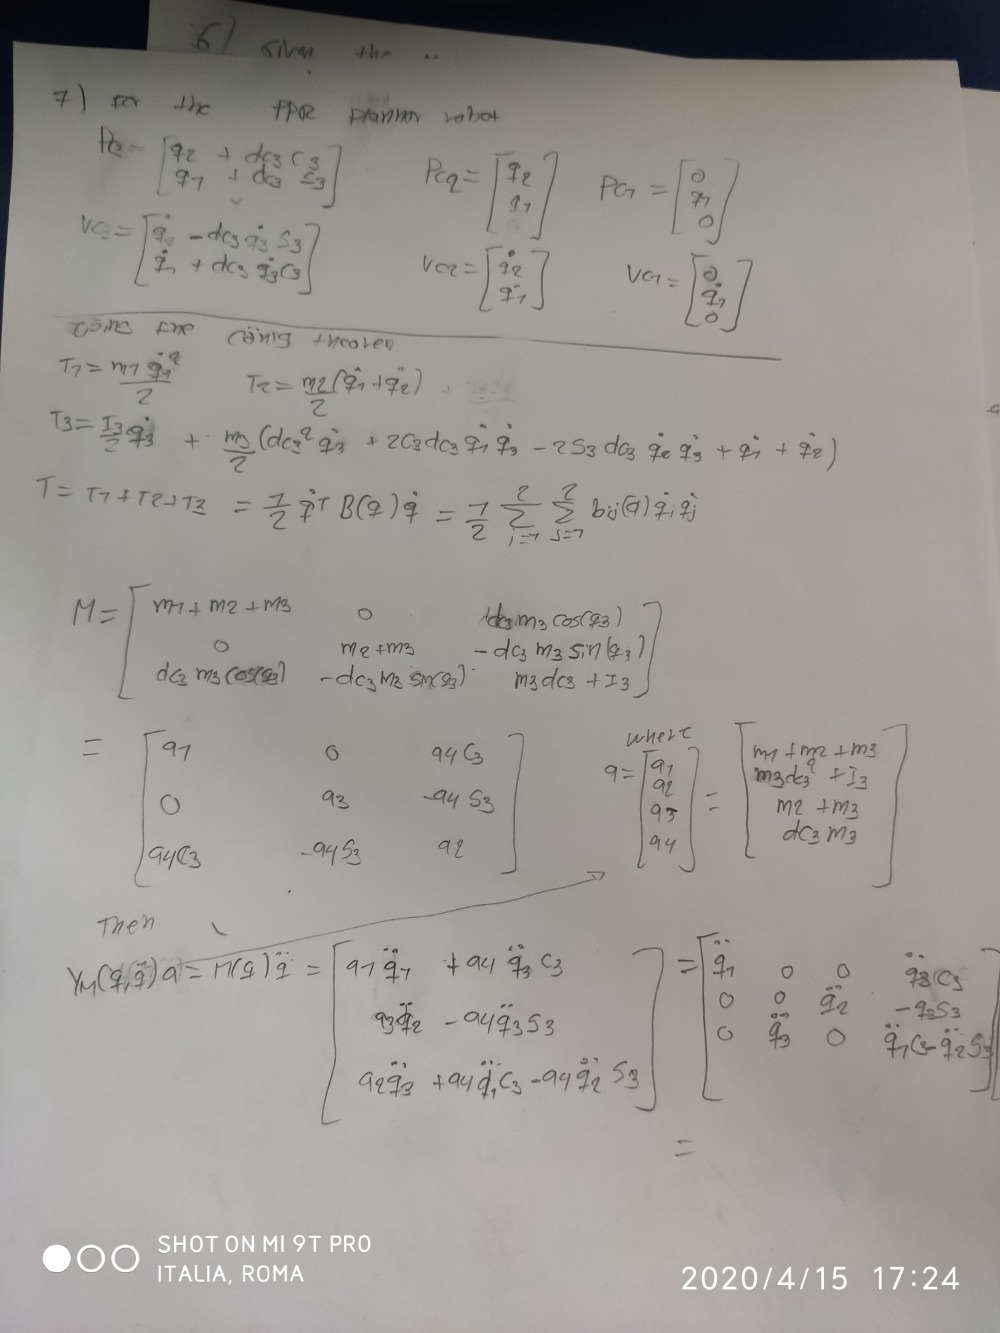 6) Given the ..
7) For the PPR planner robot
Pc3 = [q2 + dc3 c3; q1 + dc3 s3] Pc2 = [q2; q1] Pc1 = [0; q1; 0]
Vc3 = [q̇2 - dc3 q̇3 s3; q̇1 + dc3 q̇3 c3] Vc2 = [q̇2; q̇1] Vc1 = [0; q̇1; 0]
the König theorem
T1 = m1 q̇1²/2 T2 = m2/2 (q̇1 + q̇2)
T3 = I3/2 q̇3 + m3/2 (dc3² q̇3 + 2c3 dc3 q̇1 q̇3 - 2s3 dc3 q̇2 q̇3 + q̇1 + q̇2)
T = T1 + T2 + T3 = 1/2 q̇ᵀ B(q) q̇ = 1/2 Σ Σ bij(q) q̇i q̇j
M = [m1 + m2 + m3 0 dc3 m3 cos(q3)
0 m2 + m3 - dc3 m3 sin(q3)
dc3 m3 cos(q3) - dc3 m3 sin(q3) m3 dc3 + I3]
= [a1 0 a4 c3
0 a3 -a4 s3
a4 c3 -a4 s3 a2]
where
a = [a1; a2; a3; a4] = [m1 + m2 + m3; m3 dc3² + I3; m2 + m3; dc3 m3]
Then
YM(q, q̈) a = M(q) q̈ = [a1 q̈1 + a4 q̈3 c3
a3 q̈2 - a4 q̈3 s3
a2 q̈3 + a4 q̈1 c3 - a4 q̈2 s3]
= [q̈1 0 0 q̈3 c3
0 0 q̈2 - q3 s3
0 q̈3 0 q̈1 c3 - q̈2 s3]
=
SHOT ON MI 9T PRO
ITALIA, ROMA
2020/4/15 17:24